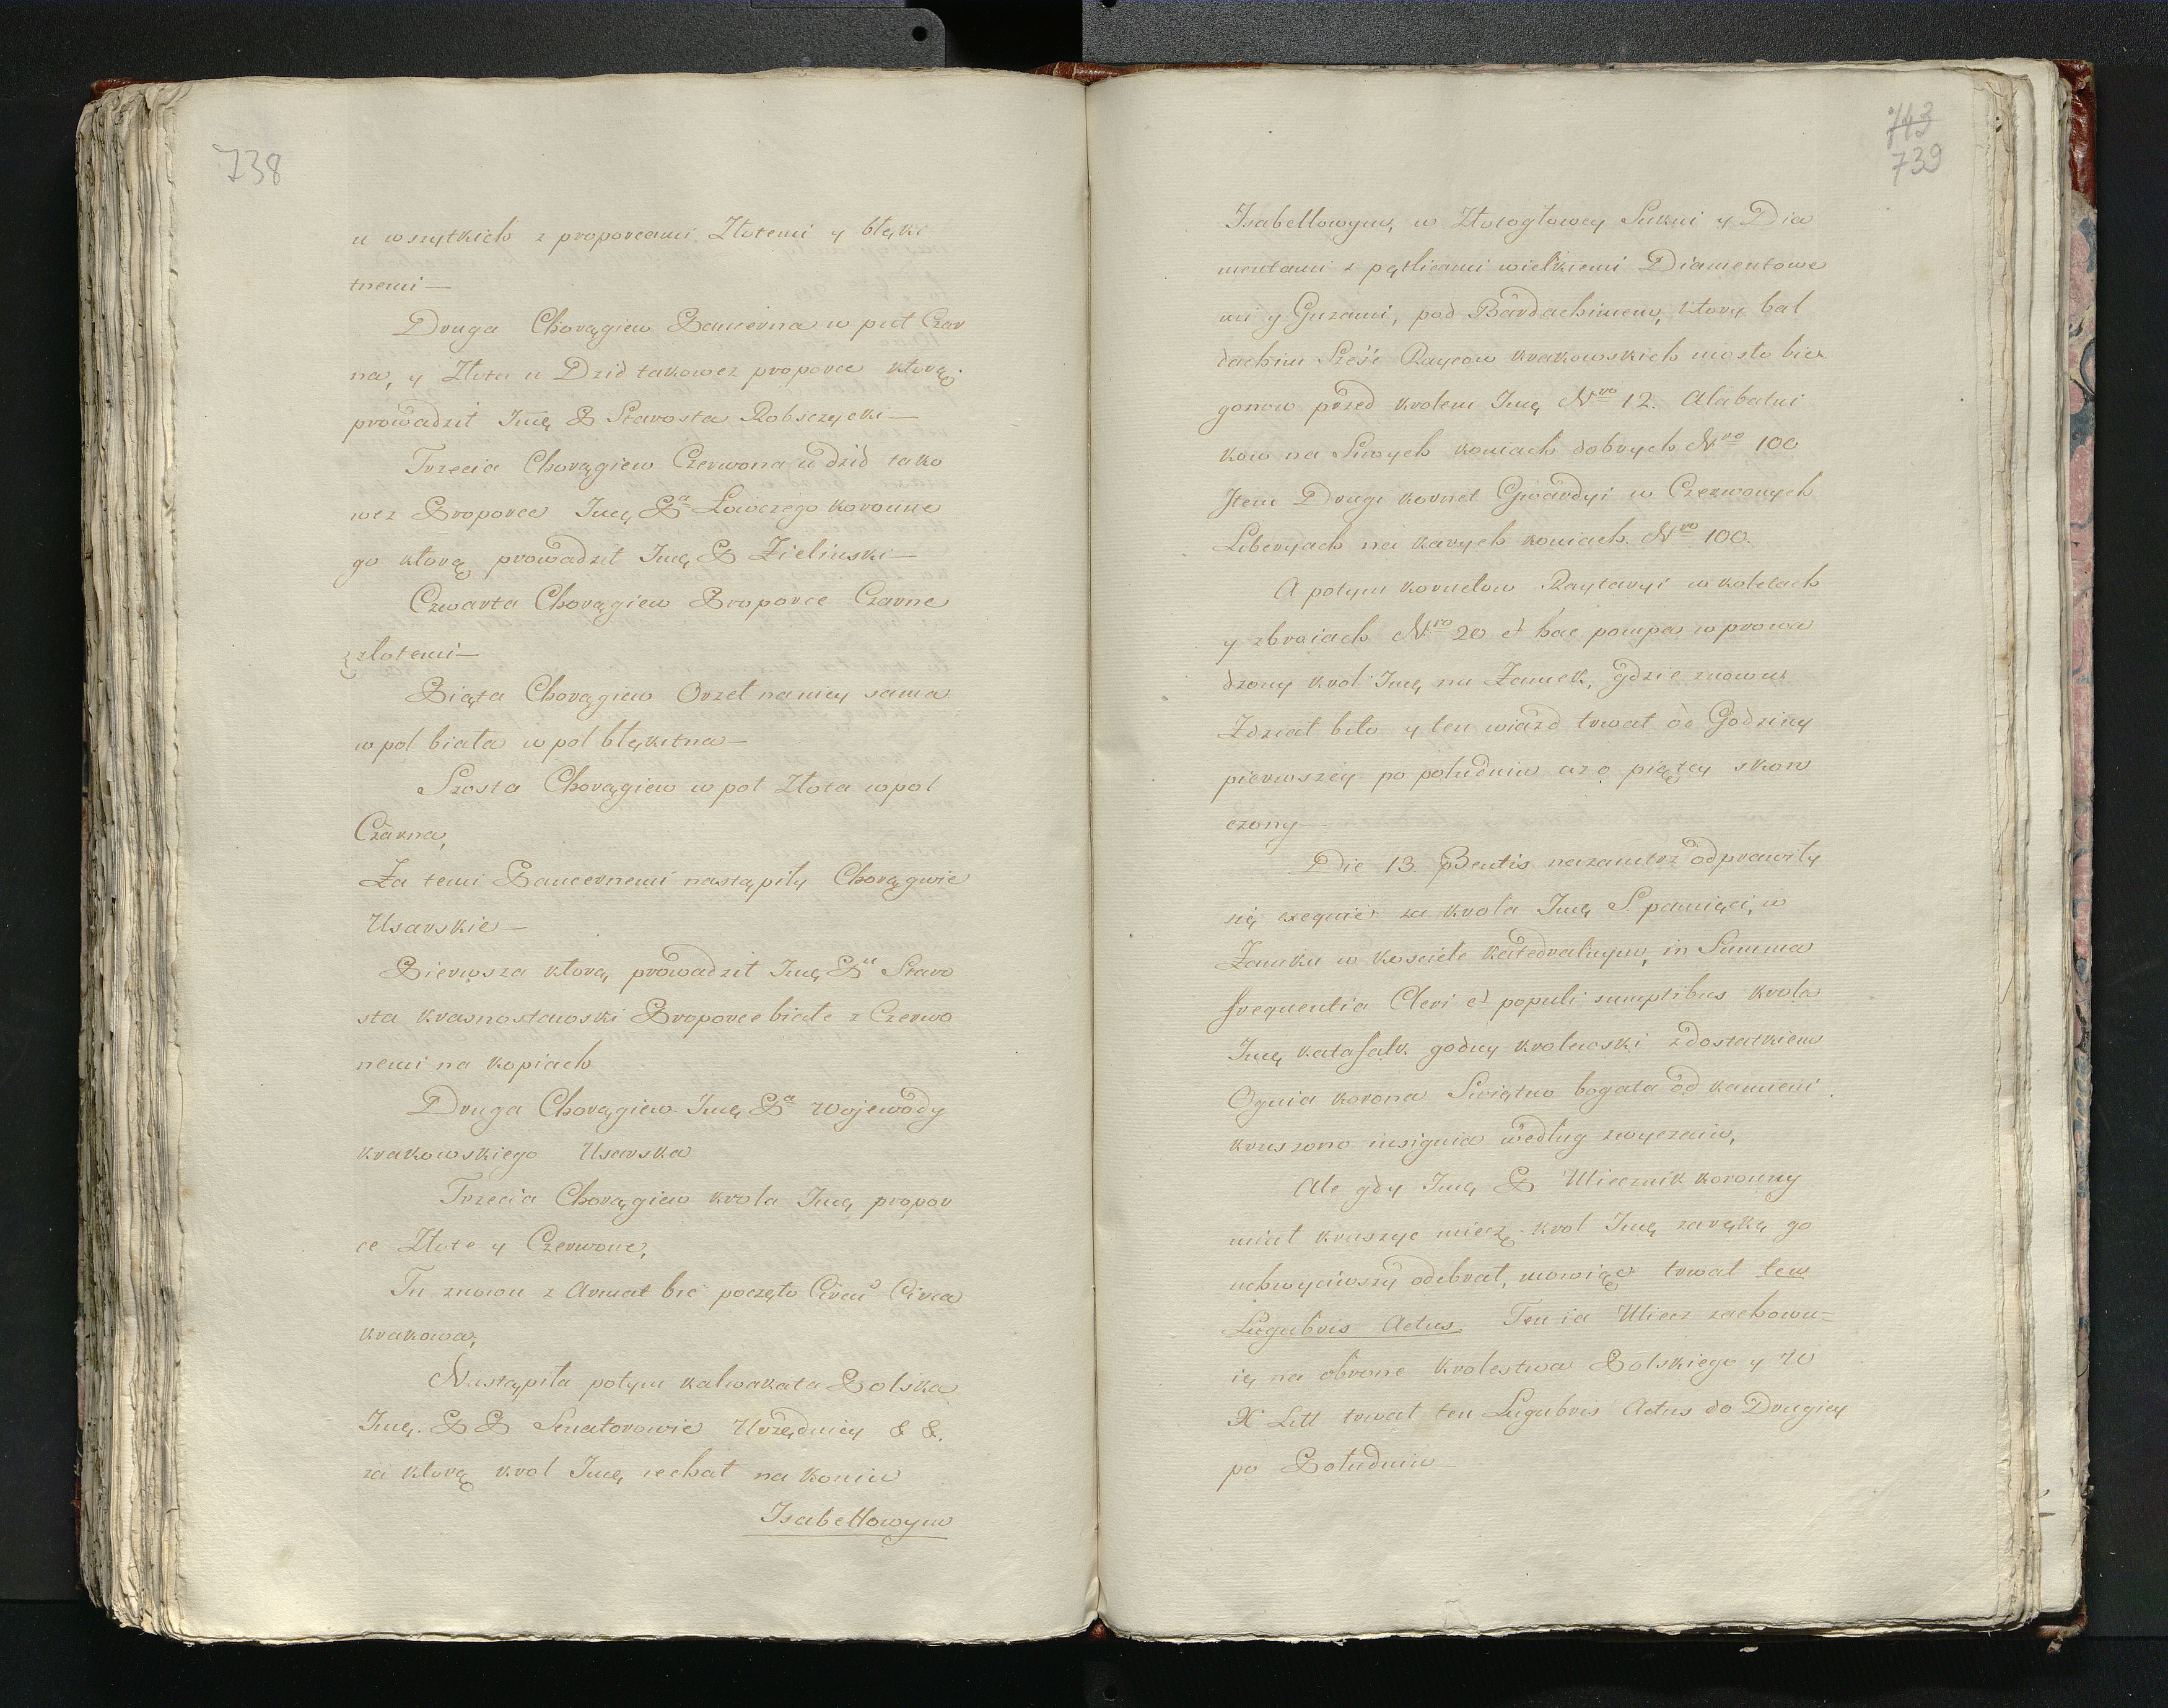 738
u wszytkich z proporcami Złotemi y błęki
tnemi —
Druga Chorągiew Pancerna w puł Czar
na, y Złota u Dzid takowez proporce ktorą
prowadził Jmę P Starosta Robsczycki —
Trzecia Chorągiew Czerwona u dzid tako
wez Proporce Jmę Pa Łowczego koronne
go ktorą prowadził Jmę P Zieliński —
Czwarta Chorągiew Proporce Czarne
z złotemi —
Piąta Chorągiew Orzeł naniey sama
w pol biała w pol błękitna —
Szosta Chorągiew w poł Złota w pol
Czarna,
Za temi Pancernemi nastąpiły Chorągwie
Usarskie —
Pierwsza ktorą prowadził Jmę Pn Staro
sta krasnostawski Proporce białe z Czerwo
nemi na kopiach
Druga Chorągiew Jmę Pa Wojewody
krakowskiego Usarska
Trzecia Chorągiew krola Jmę propor
ce Złote y Czerwone,
Tu znowu z Armat bić poczęto Circu Circa
krakowa,
Nastąpiła potym kalwakata Polska
Jmę. P P Senatorowie Urzędnicy & &.
za ktorą krol Jmę iechał na koniu
Isabellowym
743
739
Isabellowym, w Złotogłowey Sukni y Dia
mentami z pętlicami wielkiemi Diamentowe
mi y Guzami, pod Bardachimem, ktory bal
dachin Sześć Raycow krakowskich niosło bie
gonow przed krolem Jmę Nro 12. Alabatni
kow na Siwych koniach dobrych Nro 100
Item Drugi kornet Gwardyi w Czerwonych
Liberyach na karych koniach. Nro 100.
A potym kornetow Raytaryi w koletach
y zbroiach Nro 20 et hac pompa wprowa
dzony krol Jmę na Zamek, gdzie znowu
Zdział bito y ten wiazd trwał od Godziny
pierwszey po południu aż o piątey skon
czony —
Die 13. Bentis nazaiutrz odprawiły
się exequie za krola Jmę S. pamięci, w
Zamku w kosciele katedralnym, in Summa
frequentia Cleri et populi sumptibus krola
Jmę katafalk godny krolewski z dostatkiem
Ognia korona Swiątno bogata od kamieni
kruszono insignia według zwyczaiu,
Ale gdy Jmę P Miecznik koronny
miał kruszyc miecz, krol Jmę zarękę go
uchwyciwszy odebrał, mowiąc trwał ten
Lugubris Actus. Ten ia Miecz zachowu=
ię na obrone krolestwa Polskiego y W
X Litt trwał ten Lugubris Actus do Drugiey
po Południu